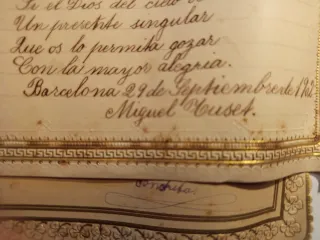 Si el Dios del cielo
Un presente singular
Que os lo permita gozar
Con la mayor alegria.
Barcelona 29 de Septiembre de 19
Miguel Tuset.
Conchita